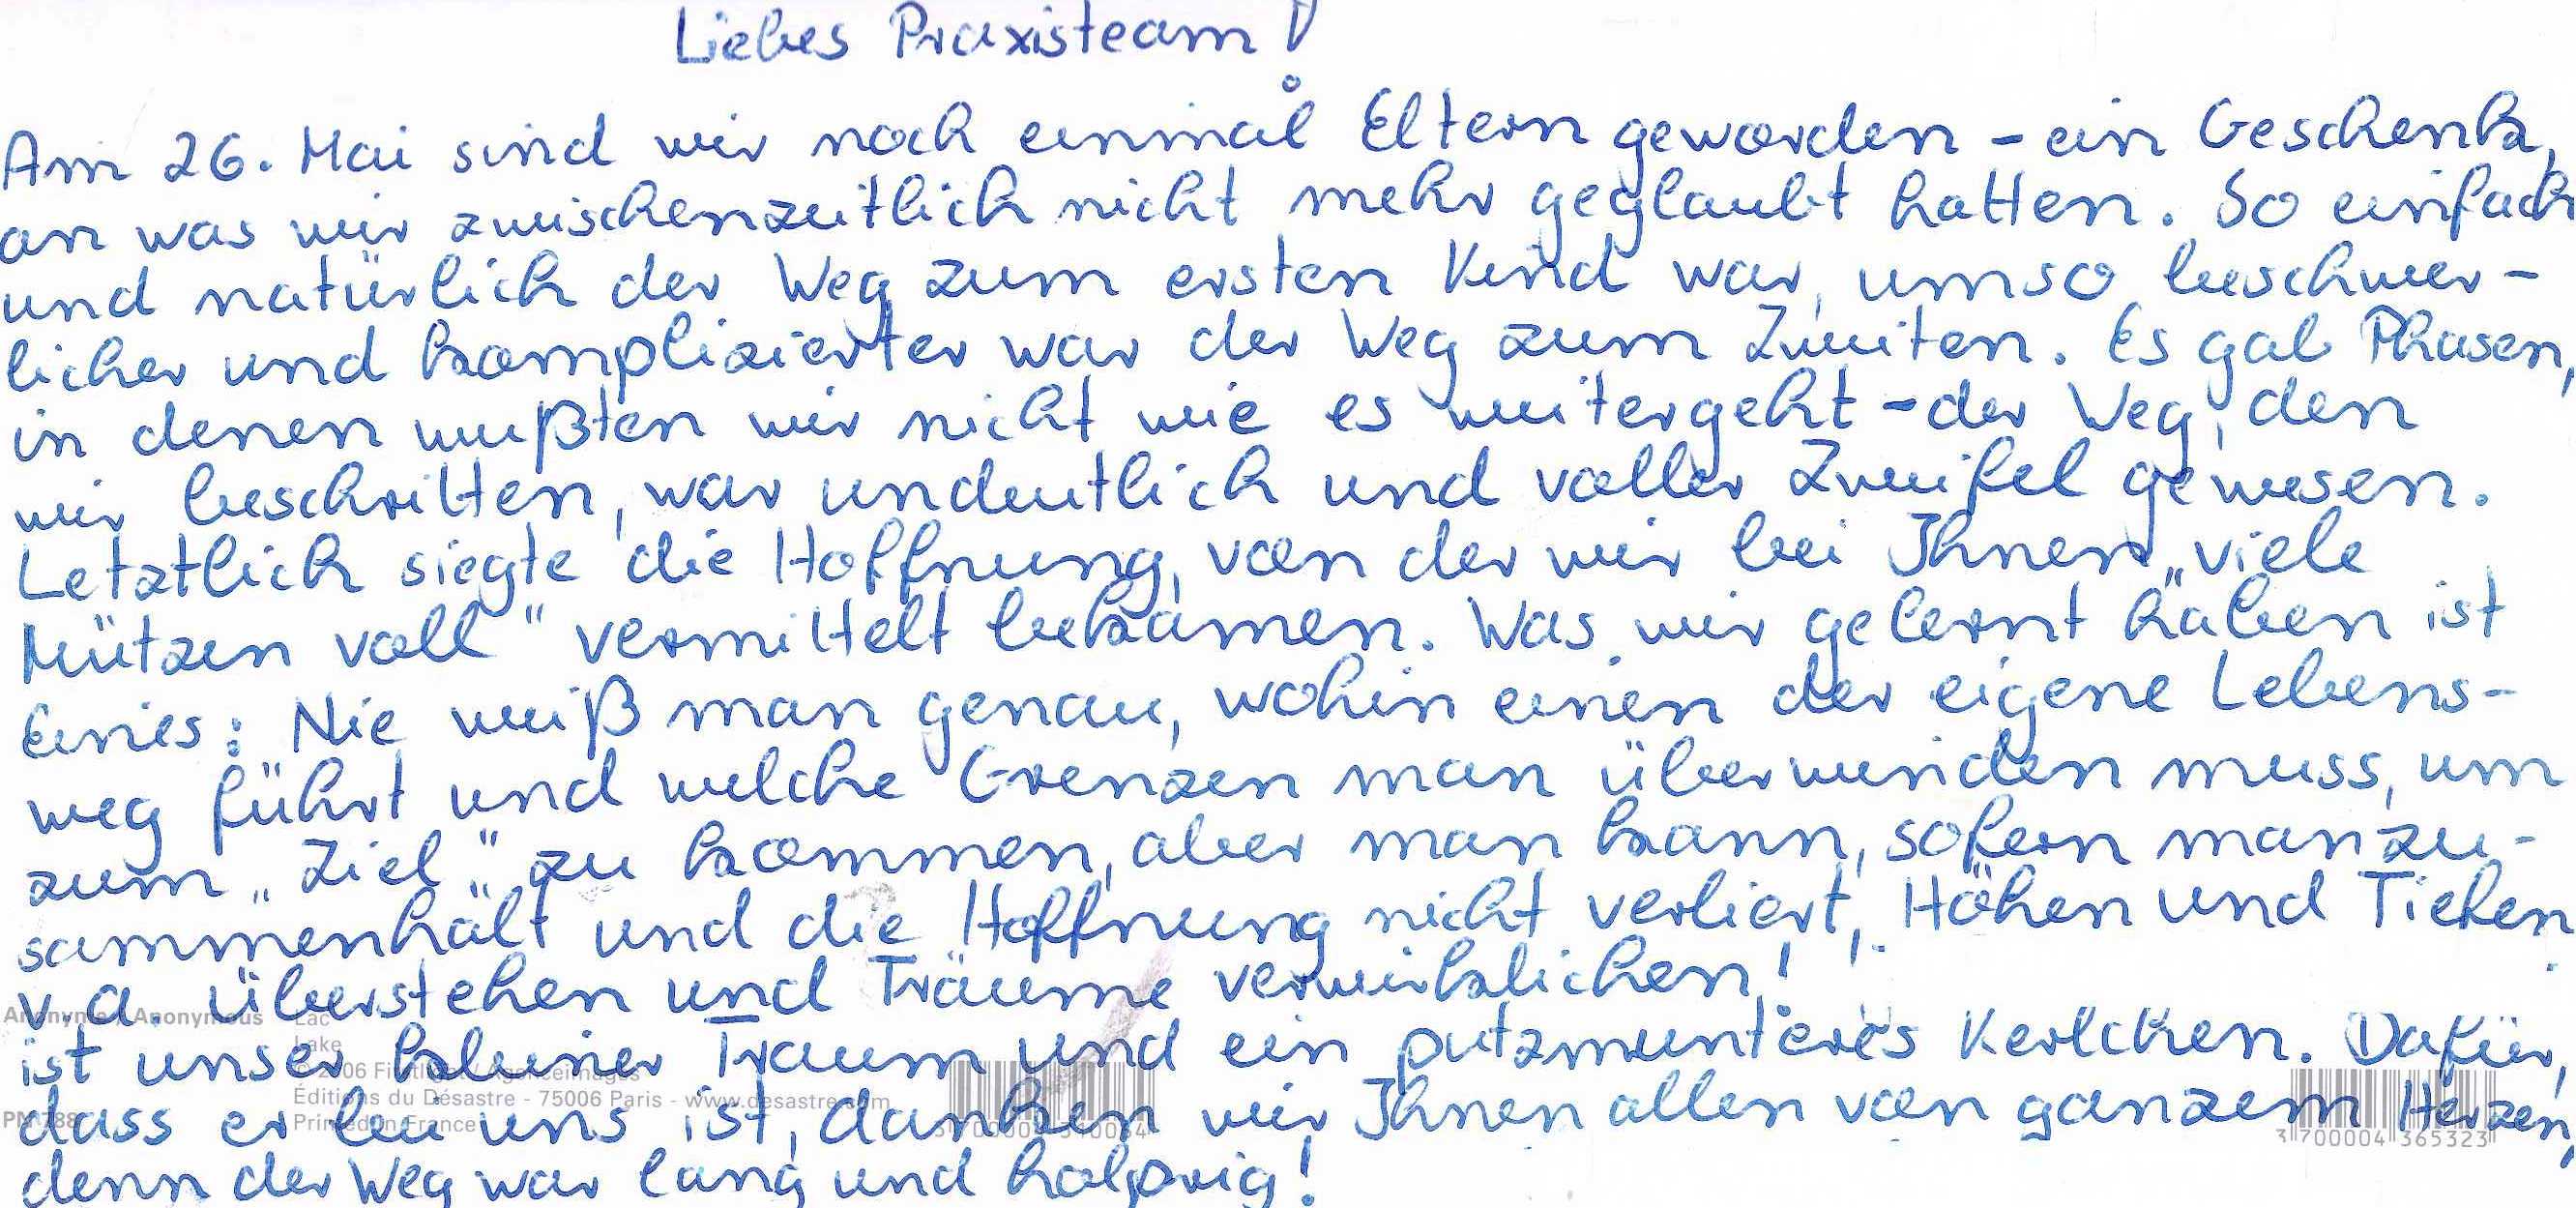 Liebes Praxisteam!
Am 26. Mai sind wir noch einmal Eltern geworden - ein Geschenk,
an was wir zwischenzeitlich nicht mehr geglaubt hatten. So einfach
und natürlich der Weg zum ersten Kind war, umso beschwer-
licher und komplizierter war der Weg zum Zweiten. Es gab Phasen,
in denen wußten wir nicht wie es weitergeht - der Weg, den
wir beschritten, war undeutlich und voller Zweifel gewesen.
Letztlich siegte die Hoffnung, von der wir bei Ihnen „viele
Mützen voll" vermittelt bekamen. Was wir gelernt haben ist
Eines: Nie weiß man genau, wohin einen der eigene Lebens-
weg führt und welche Grenzen man überwinden muss, um
zum „Ziel" zu kommen, aber man kann, sofern man zu-
sammenhält und die Hoffnung nicht verliert, Höhen und Tiefen
v.a. überstehen und Träume verwirklichen!
ist unser kleiner Traum und ein putzmunteres Kerlchen. Dafür,
dass er bei uns ist, danken wir Ihnen allen von ganzem Herzen,
denn der Weg war lang und holprig!
Anonyme / Anonymous
Lac
Lake
Éditions du Désastre - 75006 Paris - www.desastre.com
Printed in France
3 700004 365323